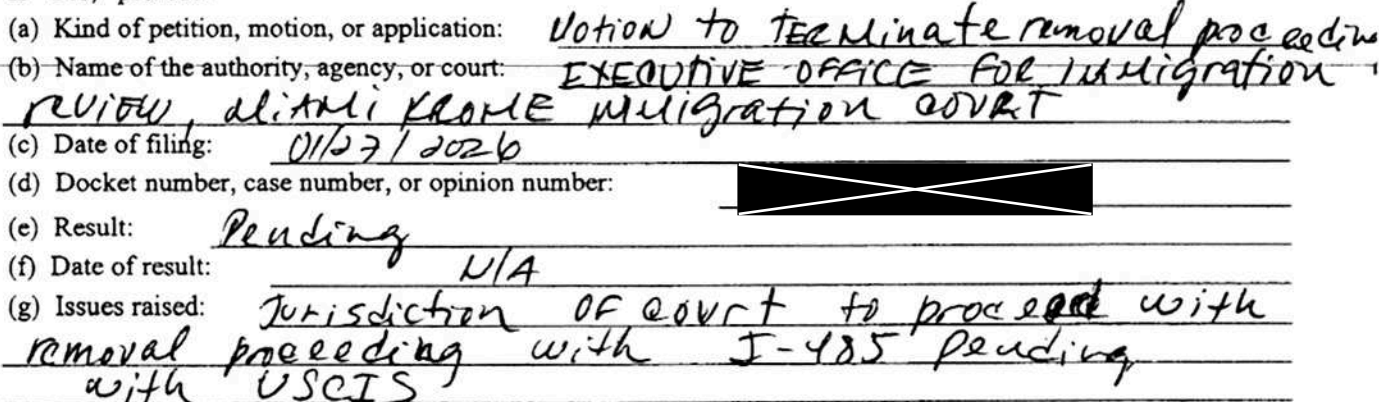 (a) Kind of petition, motion, or application: Motion to Terminate removal proceeding
(b) Name of the authority, agency, or court: EXECUTIVE OFFICE FOR IMMIGRATION
REVIEW, MIAMI KROME IMMIGRATION COURT
(c) Date of filing: 01/27/2026
(d) Docket number, case number, or opinion number:
(e) Result: Pending
(f) Date of result: N/A
(g) Issues raised: Jurisdiction OF court to proceed with
removal proceeding with I-485 Pending
with USCIS